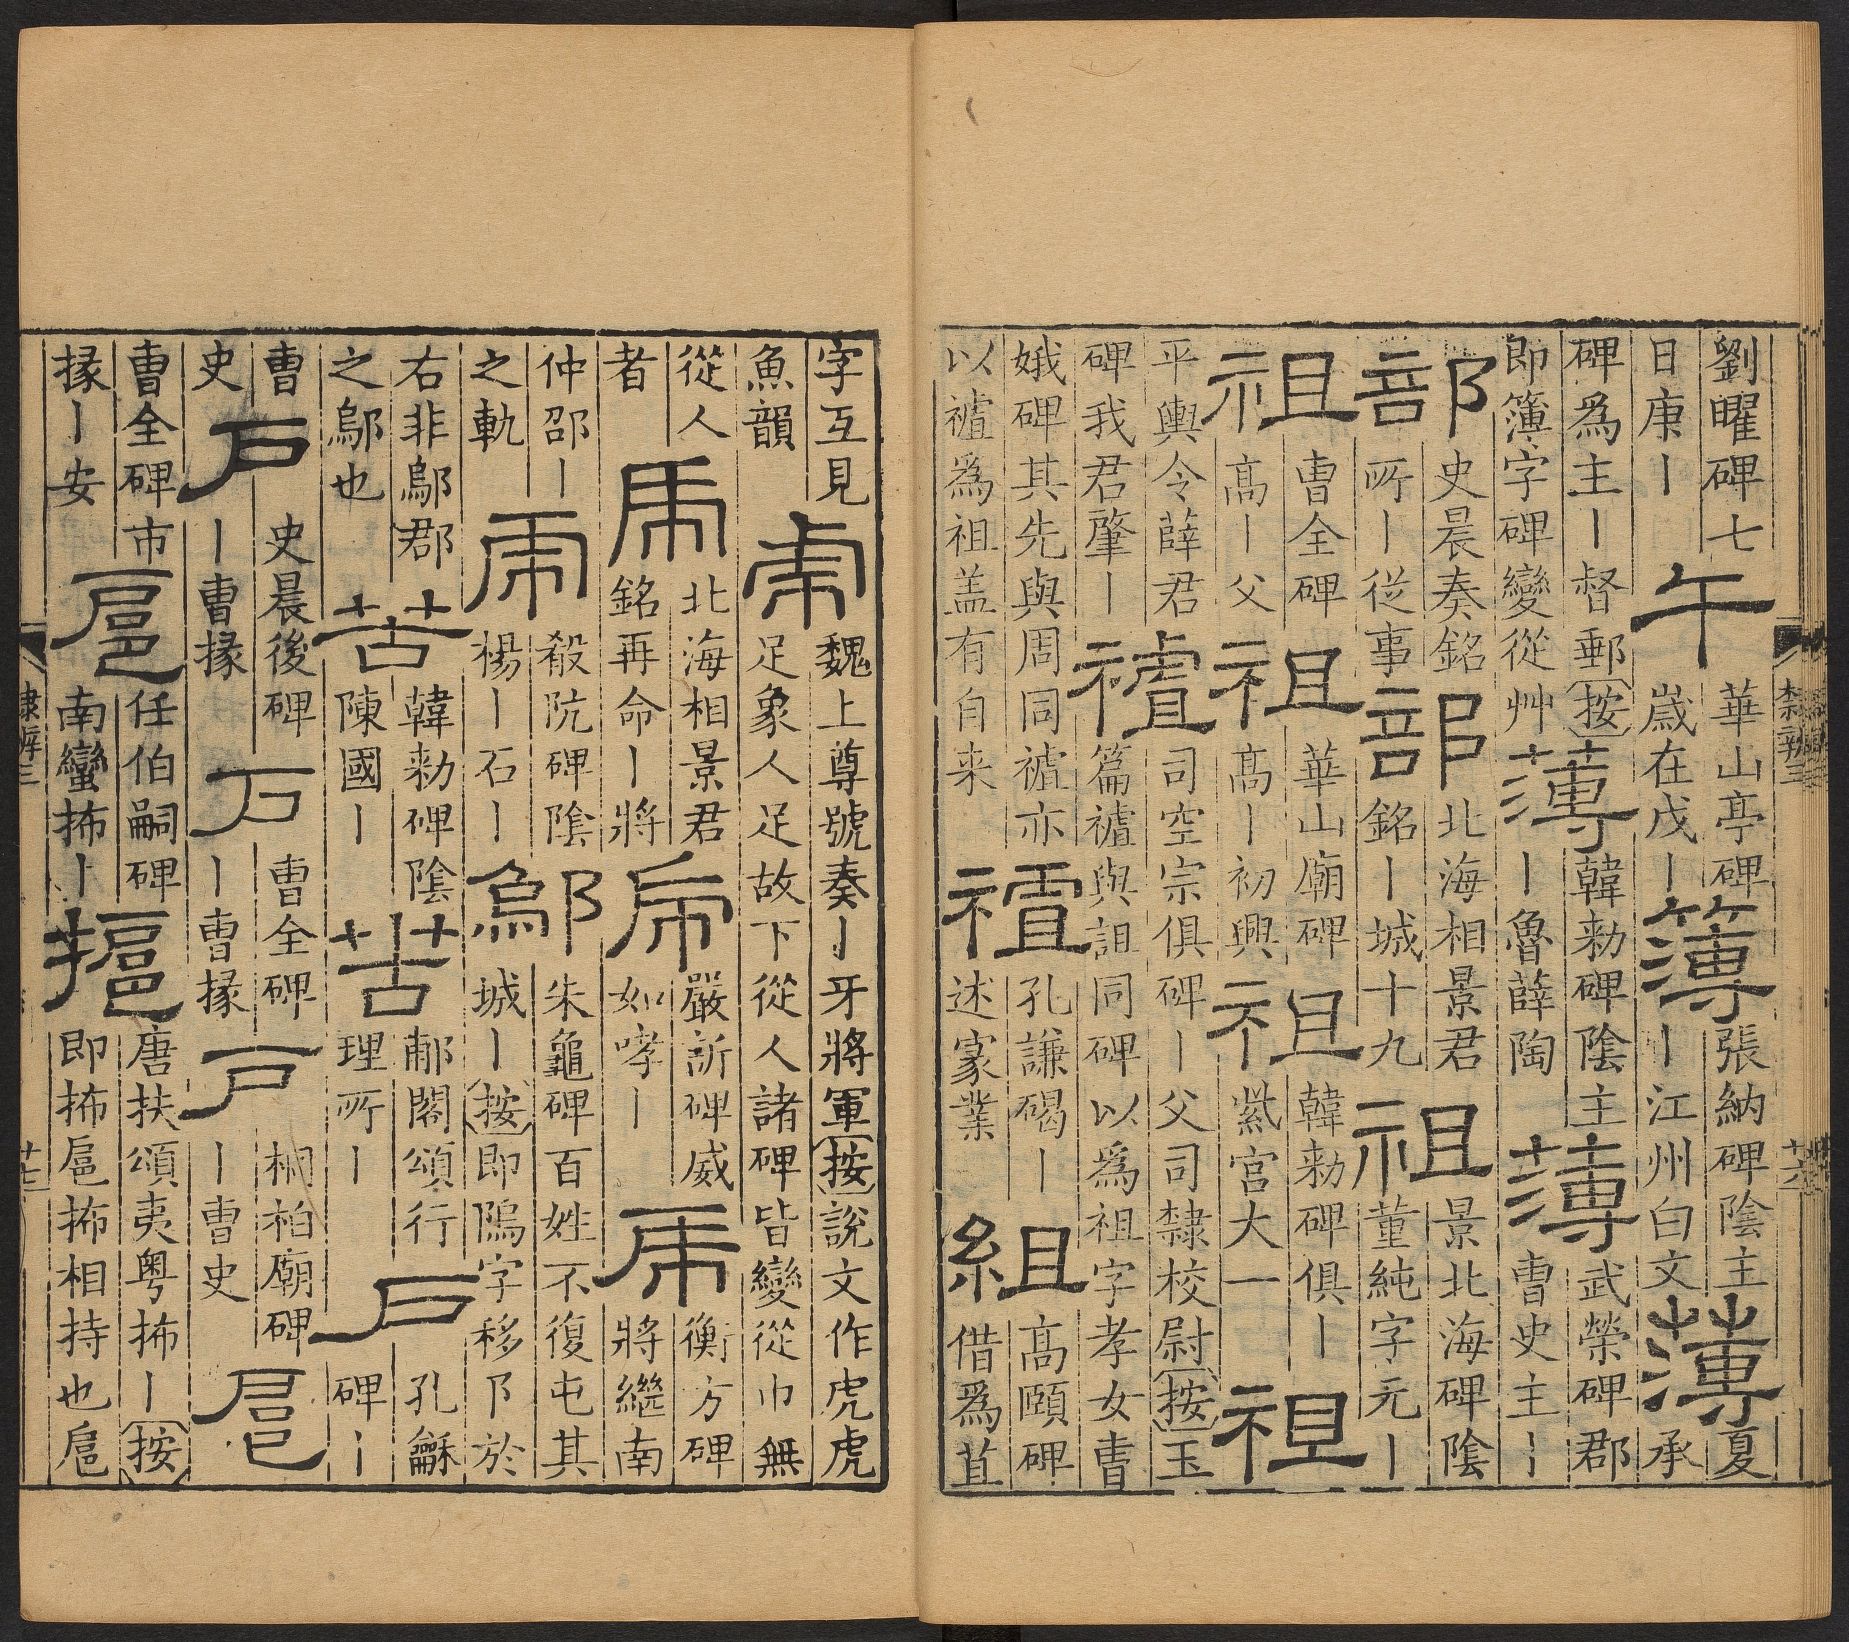 劉曜碑七
日庚丨
午
華山亭碑
歲在戊丨
簿
張納碑陰主
丨江州白文
薄
夏
承
碑爲主丨督郵按
即簿字碑變從艸
薄
韓勑碑陰主
丨魯薛陶
薄
武榮碑郡
曹史主丨
部
史晨奏銘
所丨從事
部
北海相景君
銘丨城十九
祖
景北海碑陰
董純字元丨
祖
曹全碑
高丨父
祖
華山廟碑
高丨初興
祖
韓勑碑俱丨
紫宮大一
祖
平輿令薛君
碑我君肇丨
𥛜
司空宗俱碑丨父司隸校尉按玉
篇𥛜與詛同碑以爲祖字孝女曹
娥碑其先與周同𥛜亦
以𥛜爲祖盖有自来
𥛜
孔謙碣丨
述家業
組
高頤碑
借爲苴
字互見
魚韻
虎
魏上尊號奏丨牙將軍按說文作虎虎
足象人足故下從人諸碑皆變從巾無
從人
者
虎
北海相景君
銘再命丨將
虎
嚴訢碑威
如哮丨
虎
衡方碑
將繼南
仲邵丨
之軌
虎
殽阬碑陰
楊丨石丨
鄔
朱龜碑百姓不復屯其
城丨按即隖字移阝於
右非鄔郡
之鄔也
苦
韓勑碑陰
陳國丨
苦
郙閣頌行
理所丨
戶
孔龢
碑丨
曹
史
戶
史晨後碑
丨曹掾
戶
曹全碑
丨曹掾
戶
桐柏廟碑
丨曹史
扈
曹全碑市
掾丨安
扈
任伯嗣碑
南蠻抪丨
唐扶頌夷粤抪丨按
即抪扈抪相持也扈
隸辨三
十七